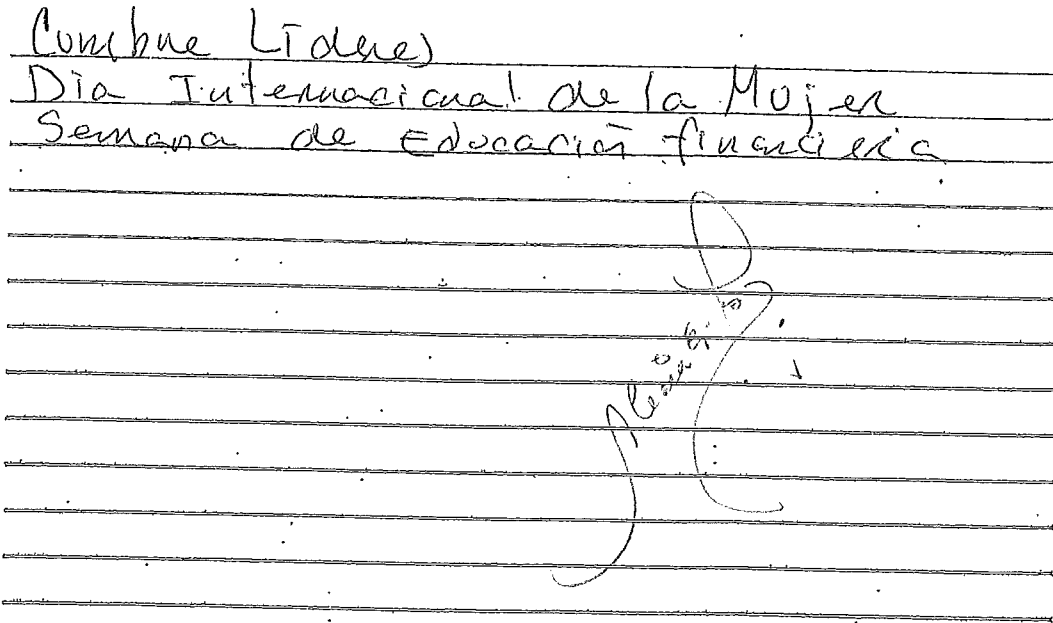 Cumbre Líderes
Día Internacional de la Mujer
Semana de Educación financiera